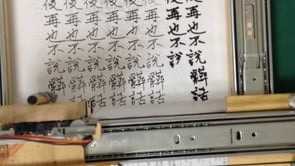 後再也不說髒話
後再也不說髒話
後再也不說髒話
後再也不說髒話
後再也不說髒話
後再也不說髒話
後再也不說髒話